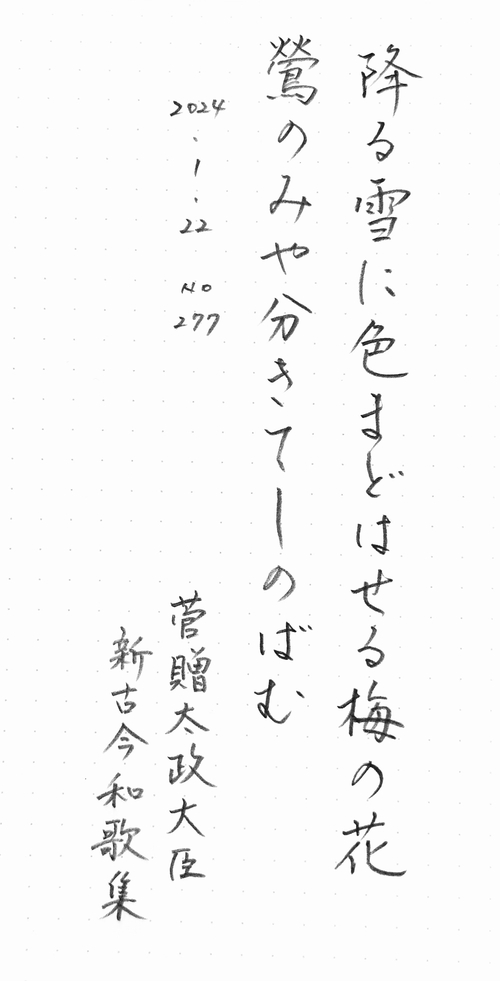 降る雪に色まどはせる梅の花
鶯のみや分きてしのばむ
2024.1.22 No 277
菅贈太政大臣
新古今和歌集